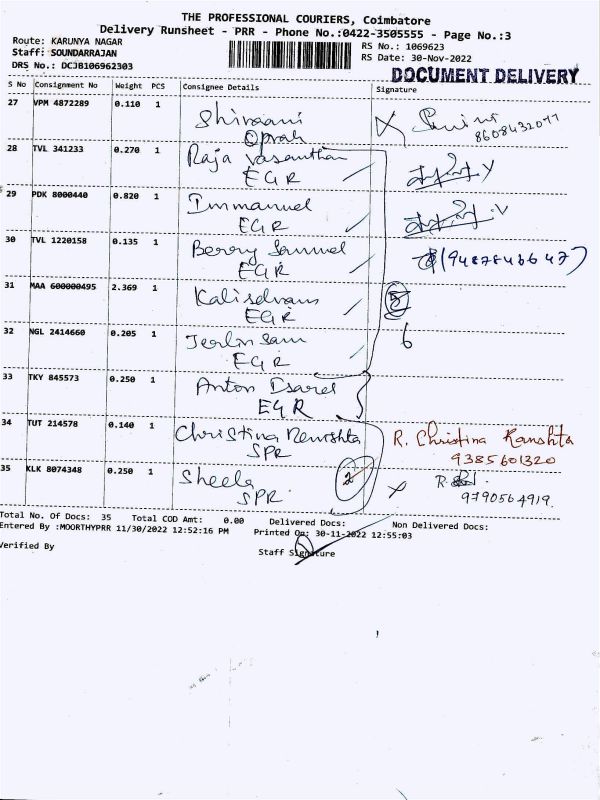 THE PROFESSIONAL COURIERS, Coimbatore
Delivery Runsheet - PRR - Phone No.:0422-3505555 - Page No.:3
Route: KARUNYA NAGAR
RS No.: 1069623
Staff: SOUNDARRAJAN
RS Date: 30-Nov-2022
DRS No.: DCJB106962303
DOCUMENT DELIVERY
S No Consignment No Weight PCS Consignee Details Signature
27 VPM 4872289 0.110 1 Shivaani
8608432077
Oprah
28 TVL 341233 0.270 1 Raja Vasanthan
EGR
29 PDK 8000440 0.820 1 Immanuel
EGR
30 TVL 1220158 0.135 1 Berry Samuel
EGR
31 MAA 600000495 2.369 1 Kaliselvam
EGR
6
32 NGL 2414660 0.205 1 Jerlin Sam
EGR
33 TKY 845573 0.250 1 Anton Isarel
EGR
34 TUT 214578 0.140 1 Christina R. Christina Kanshta
SPR 9385601320
35 KLK 8074348 0.250 1 Sheela 2
SPR 9790564919.
Total No. Of Docs: 35 Total COD Amt: 0.00 Delivered Docs: Non Delivered Docs:
Entered By :MOORTHYPRR 11/30/2022 12:52:16 PM Printed On: 30-11-2022 12:55:03
Verified By
Staff Signature